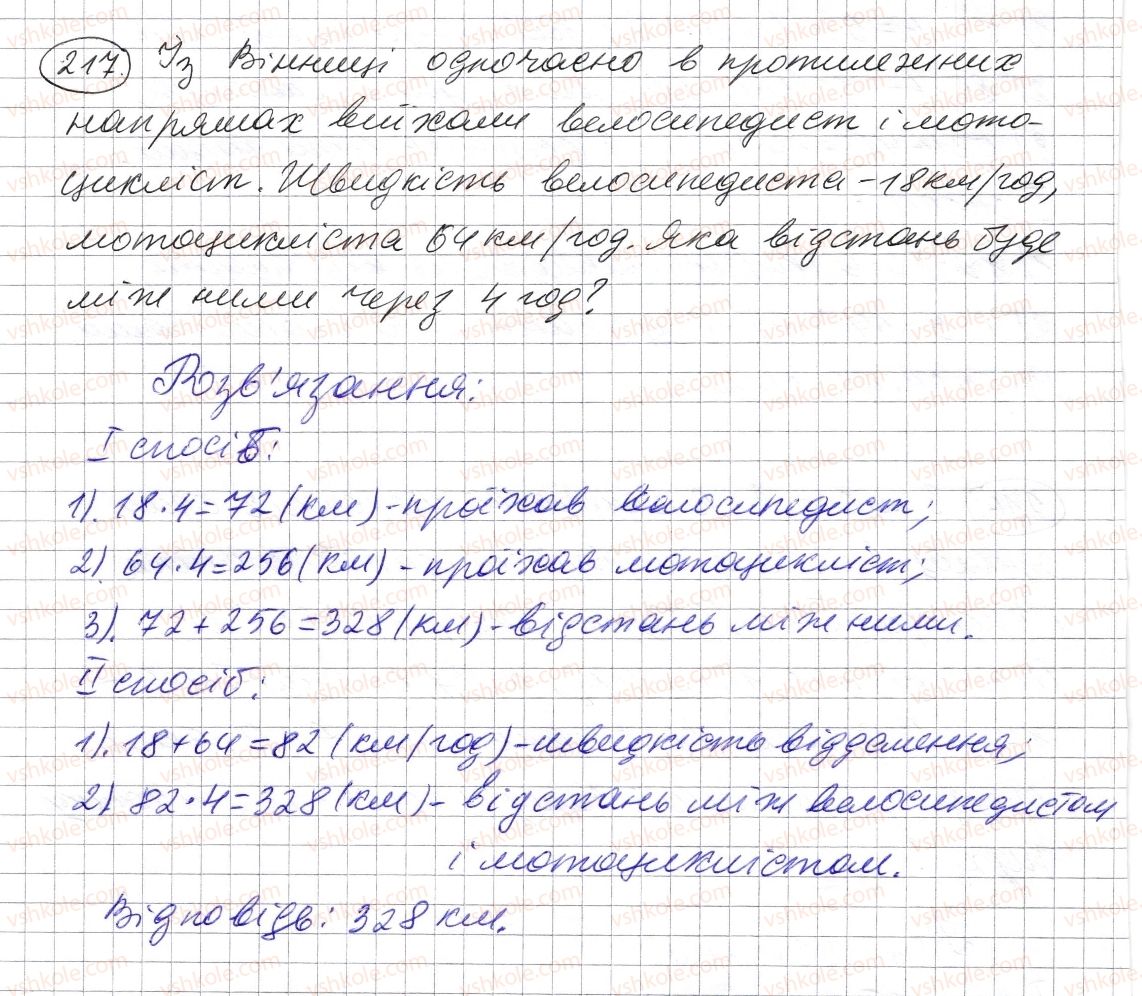 217. Із Вінниці одночасно в протилежних
напрямах виїхали велосипедист і мото-
цикліст. Швидкість велосипедиста - 18 км/год,
мотоцикліста 64 км/год. Яка відстань буде
між ними через 4 год?
Розв'язання:
I спосіб:
1). 18·4=72 (км) - проїхав велосипедист;
2). 64·4=256 (км) - проїхав мотоцикліст;
3). 72+256=328 (км) - відстань між ними.
II спосіб:
1). 18+64=82 (км/год) - швидкість віддалення;
2) 82·4=328 (км) - відстань між велосипедистом
і мотоциклістом.
Відповідь: 328 км.